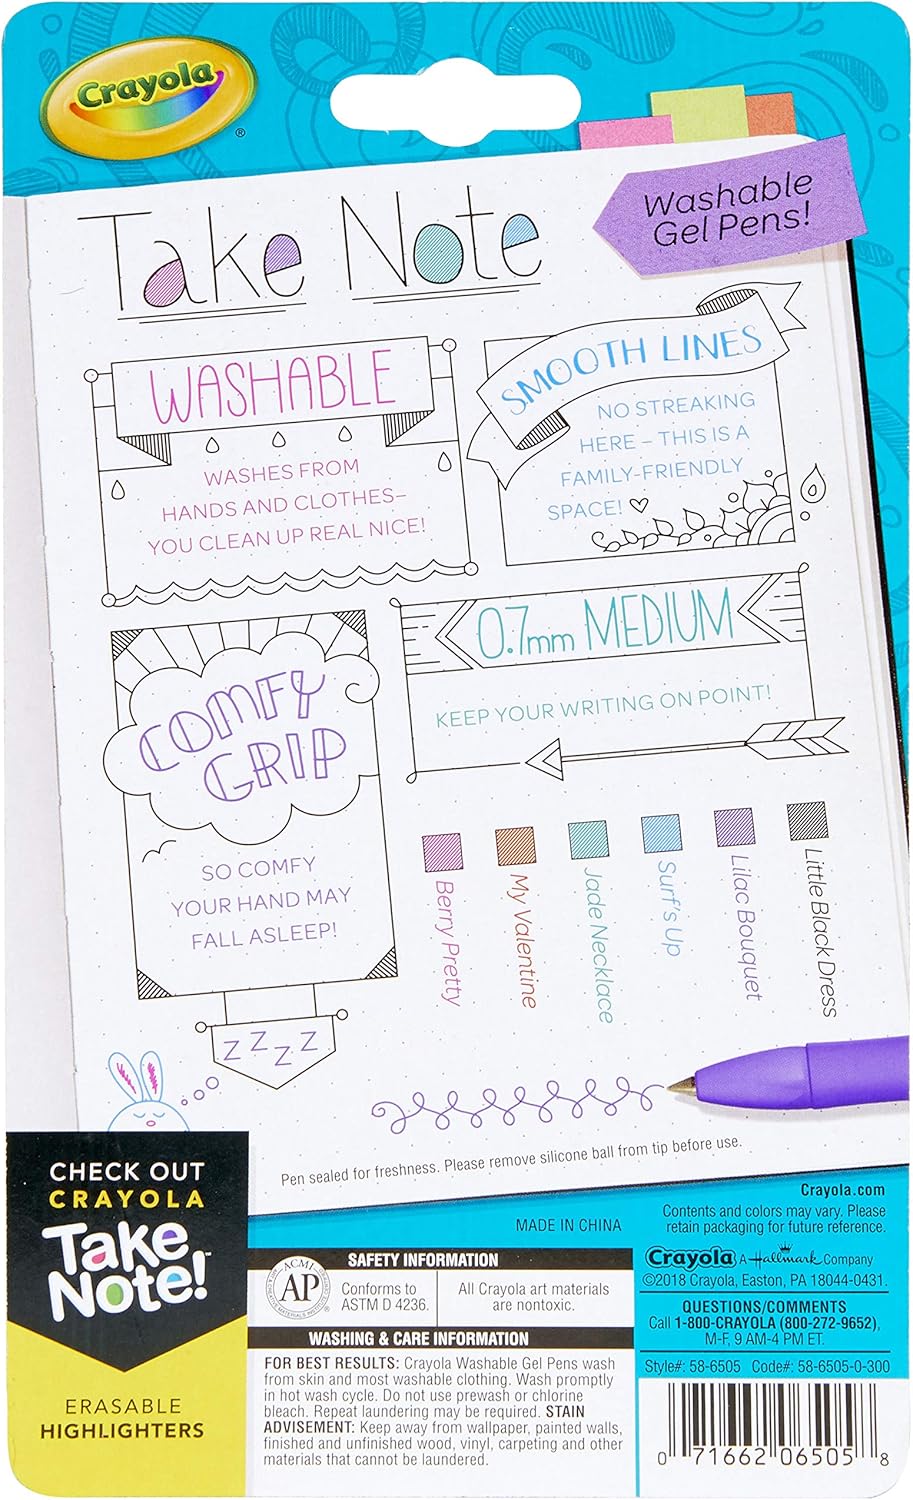 Crayola
®
Take Note
Washable
Gel Pens!
WASHABLE
WASHES FROM
HANDS AND CLOTHES–
YOU CLEAN UP REAL NICE!
SMOOTH LINES
NO STREAKING
HERE – THIS IS A
FAMILY-FRIENDLY
SPACE!
COMFY
GRIP
SO COMFY
YOUR HAND MAY
FALL ASLEEP!
Z Z Z Z
0.7mm MEDIUM
KEEP YOUR WRITING ON POINT!
Berry Pretty
My Valentine
Jade Necklace
Surf's Up
Lilac Bouquet
Little Black Dress
Pen sealed for freshness. Please remove silicone ball from tip before use.
CHECK OUT
CRAYOLA
Take
Note!™
ERASABLE
HIGHLIGHTERS
MADE IN CHINA
SAFETY INFORMATION
ACMI
AP
®
Conforms to
ASTM D 4236.
All Crayola art materials
are nontoxic.
WASHING & CARE INFORMATION
FOR BEST RESULTS: Crayola Washable Gel Pens wash
from skin and most washable clothing. Wash promptly
in hot wash cycle. Do not use prewash or chlorine
bleach. Repeat laundering may be required. STAIN
ADVISEMENT: Keep away from wallpaper, painted walls,
finished and unfinished wood, vinyl, carpeting and other
materials that cannot be laundered.
Crayola.com
Contents and colors may vary. Please
retain packaging for future reference.
Crayola A Hallmark Company
©2018 Crayola, Easton, PA 18044-0431.
QUESTIONS/COMMENTS
Call 1-800-CRAYOLA (800-272-9652),
M-F, 9 AM-4 PM ET.
Style#: 58-6505 Code#: 58-6505-0-300
0 71662 06505 8